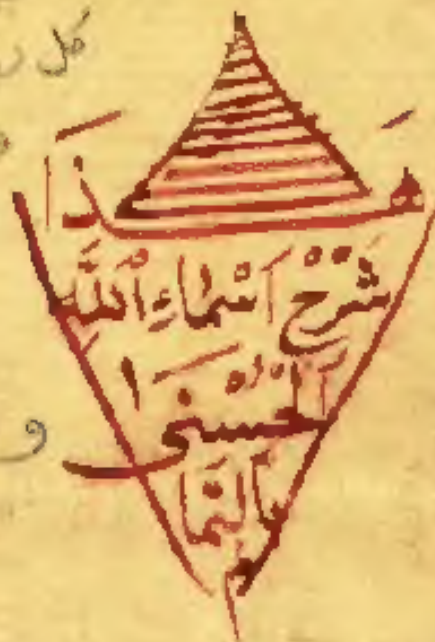 كل
هَذَا
شَرْحُ اَسْمَاءِ اللّٰهِ
الْحُسْنٰى
و
بالتما
م